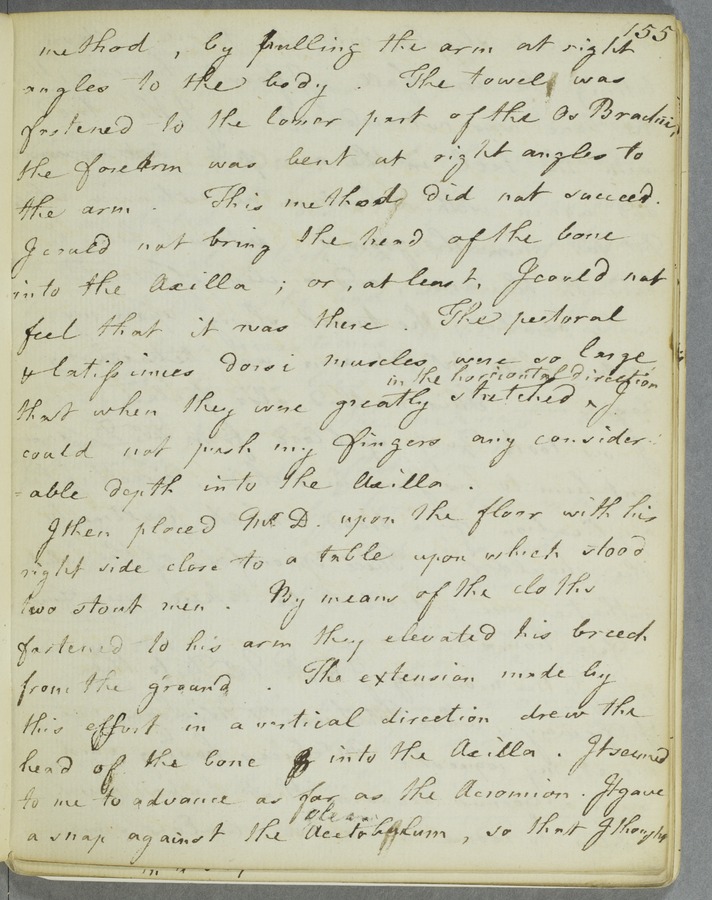 155
method, by pulling the arm at right
angles to the body. The towel was
fastened to the lower part of the Os Brachii,
the forearm was bent at right angles to
the arm. This method did not succeed.
I could not bring the head of the bone
into the Axilla; or, at least, I could not
feel that it was there. The pectoral
& latissimus dorsi muscles were so large
in the horizontal direction
that when they were greatly stretched ^ I
could not push my fingers any consider
=able depth into the Axilla.
I then placed Mr. D. upon the floor with his
right side close to a table upon which stood
two stout men. By means of the cloths
fastened to his arm they elevated his breech
from the ground. The extension made by
this effort in a vertical direction drew the
head of the bone into the Axilla. It seemed
to me to advance as far as the Acromion. It gave
a snap against the Acetabulum, so that I thought